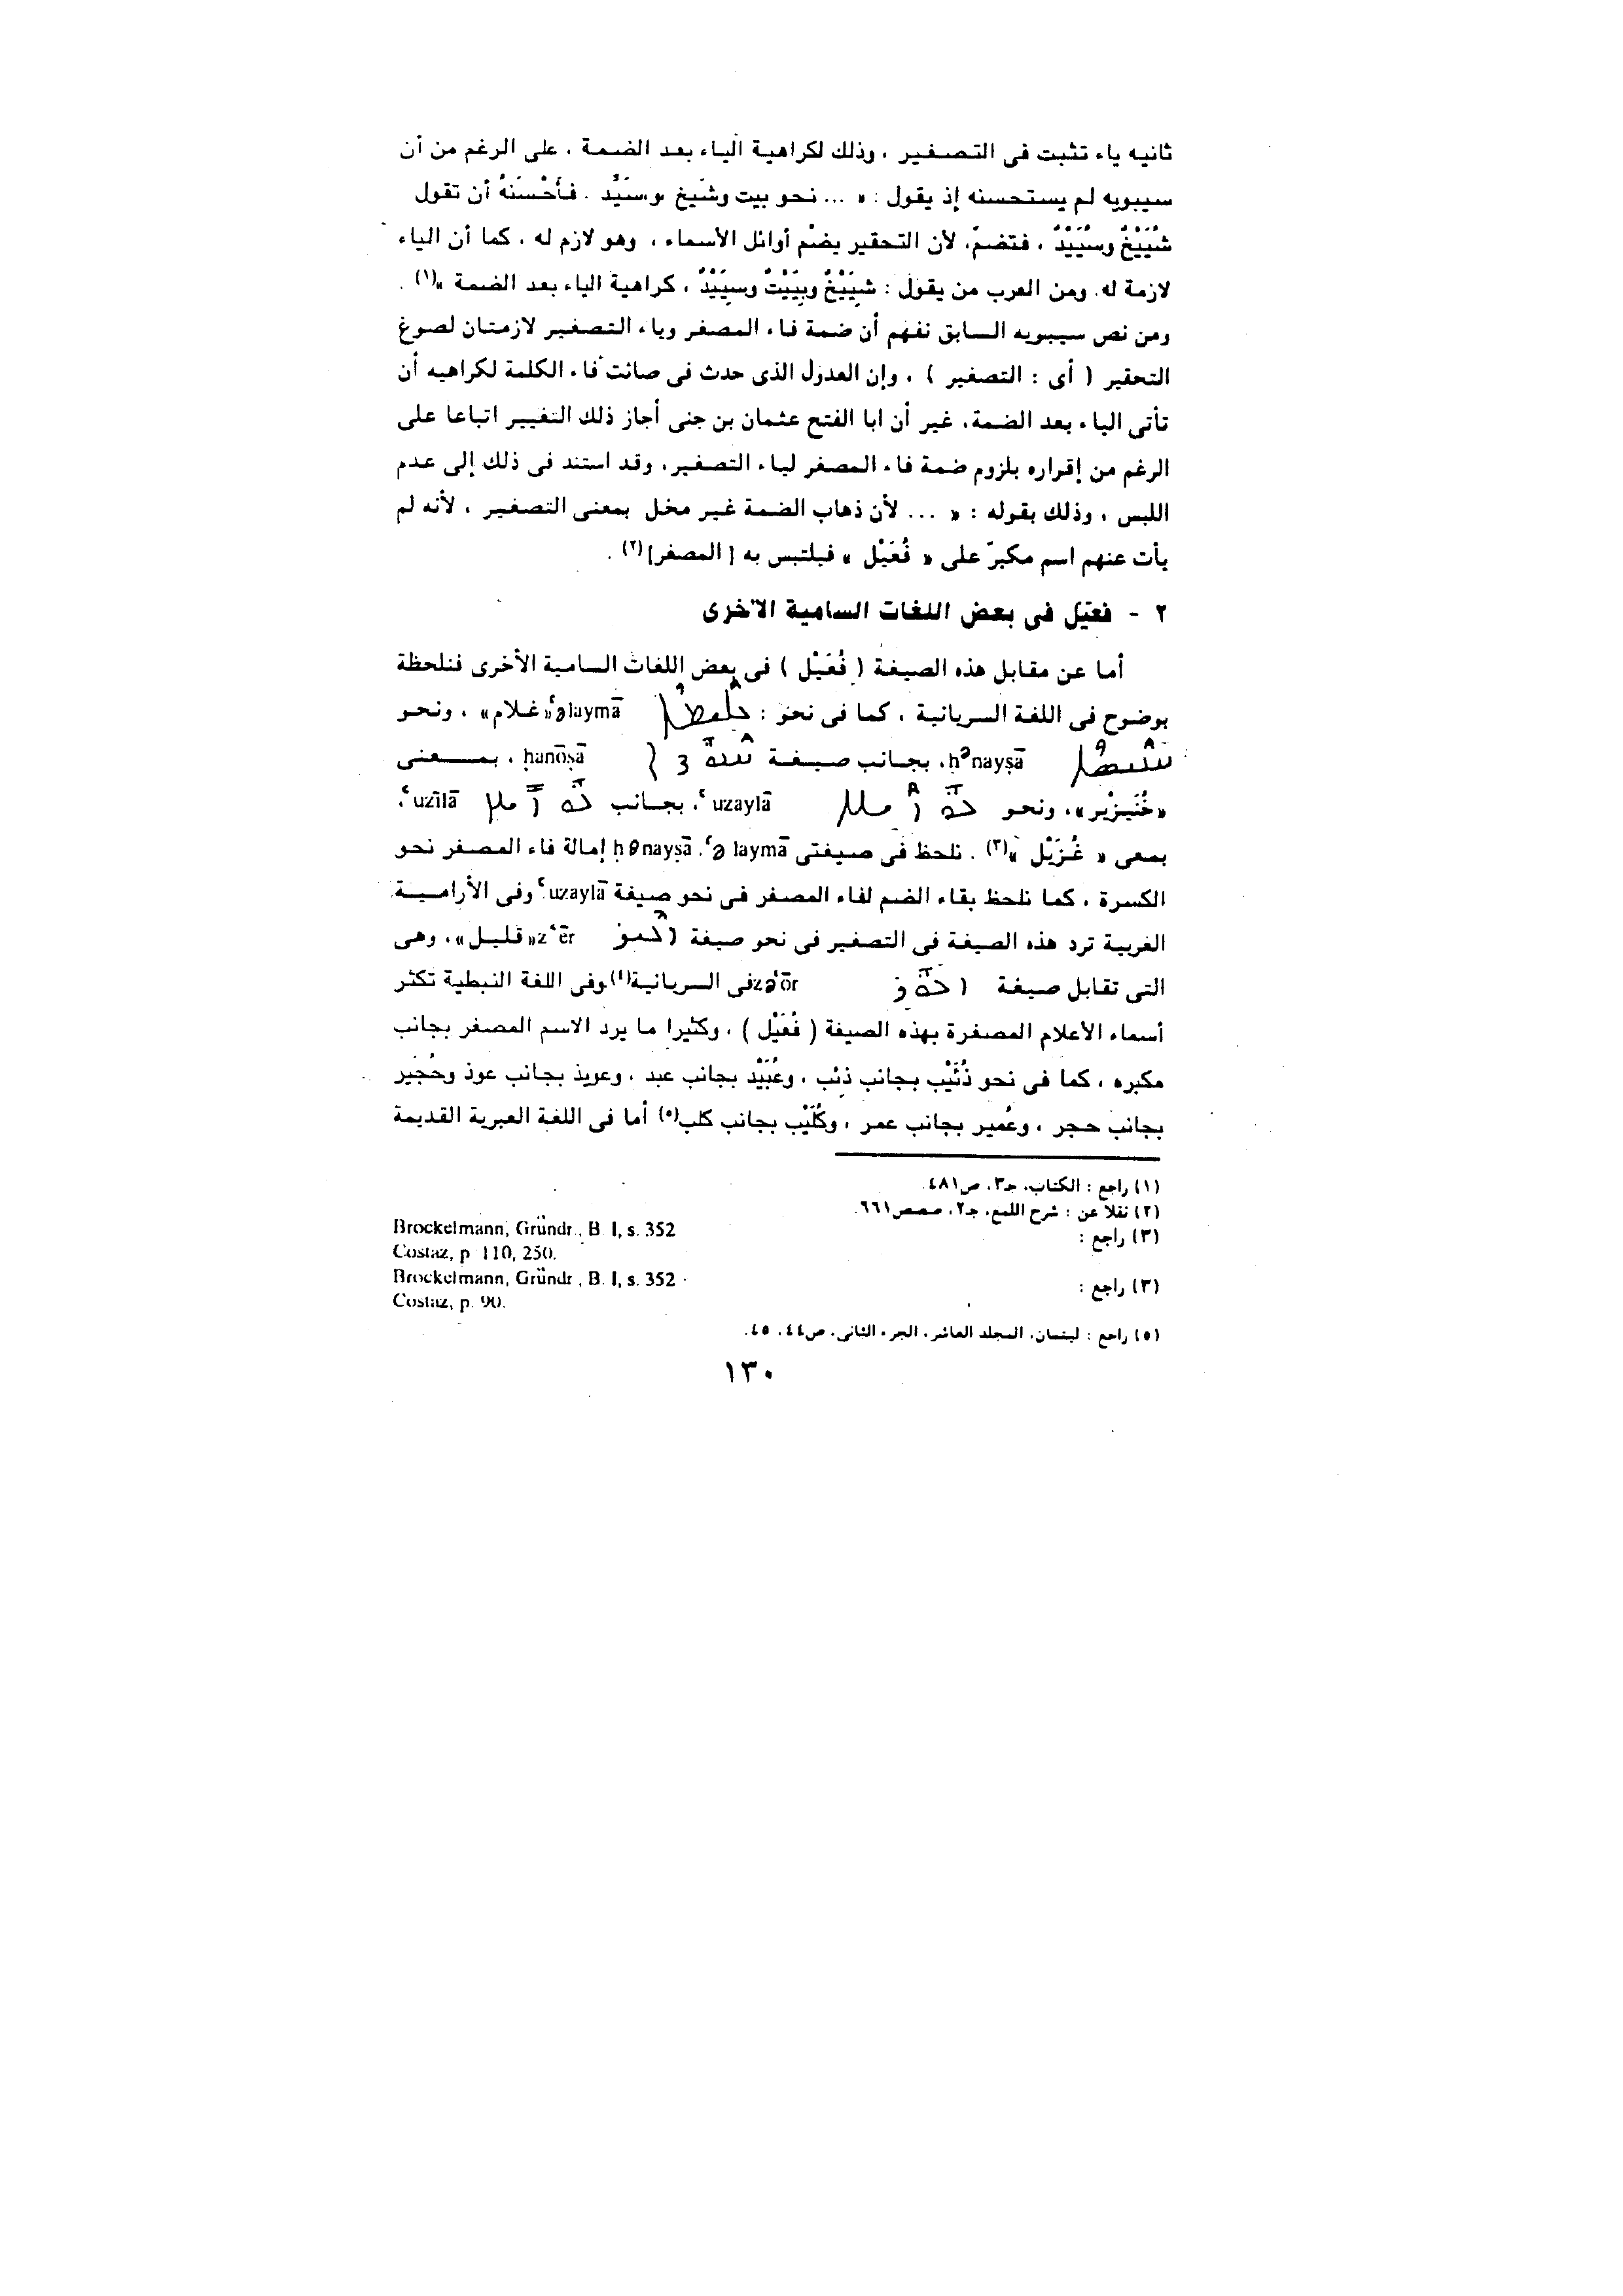 ثانيه ياء تثبت فى التصغير ، وذلك لكراهية الياء بعد الضمة ، على الرغم من أن
سيبويه لم يستحسنه إذ يقول : « ... نحو بيت وشَيخ وسَيُّد . فأَحْسَنَهُ أن تقول
شُيَيْخٌ وسُيَيْدٌ ، فتضمّ، لأن التحقير يضمْ أوائل الأسماء ، وهو لازم له ، كما أن الياء
لازمة له. ومن العرب من يقول : شِيَيْخٌ وبِيَيْتٌ وسِيَيْدٌ ، كراهية الياء بعد الضمة »(١) .
ومن نص سيبويه السابق نفهم أن ضمة فاء المصغر وياء التصغير لازمتان لصوغ
التحقير ( أى : التصغير ) ، وإن العدول الذى حدث فى صائت فاء الكلمة لكراهيه أن
تأتى الياء بعد الضمة، غير أن ابا الفتح عثمان بن جنى أجاز ذلك التغيير اتباعا على
الرغم من إقراره بلزوم ضمة فاء المصغر لياء التصغير، وقد استند فى ذلك إلى عدم
اللبس ، وذلك بقوله : « ... لأن ذهاب الضمة غير مخل بمعنى التصغير ، لأنه لم
يأت عنهم اسم مكبرّ على « فُعَيْل » فيلتبس به [ المصغر](٢) .
٢ - فعيل فى بعض اللغات السامية الأخرى
أما عن مقابل هذه الصيغة ( فُعَيْل ) فى بعض اللغات السامية الأخرى فنلحظة
بوضوح فى اللغة السريانية ، كما فى نحو : ʿəlaymā «غلام» ، ونحو
ḥənayṣā، بجانب صيغة ḥanōṣā ، بمعنى
«خُنَيزْير»، ونحو ʿuzaylā، بجانب ʿuzīlā،
بمعى « غُزَيْل »(٣) . نلحظ فى صيغتى ʿəlaymā، ḥənayṣā إمالة فاء المصغر نحو
الكسرة ، كما نلحظ بقاء الضم لفاء المصغر فى نحو صيغة ʿuzaylā وفى الأرامية
الغربية ترد هذه الصيغة فى التصغير فى نحو صيغة zʿēr «قليل»، وهى
التى تقابل صيغة zəʿōr فى السريانية(٤) وفى اللغة النبطية تكثر
أسماء الأعلام المصغرة بهذه الصيغة ( فُعَيْل ) ، وكثيرا ما يرد الاسم المصغر بجانب
مكبره ، كما فى نحو ذُئَيْب بجانب ذئب ، وعُبَيْد بجانب عبد ، وعويذ بجانب عوذ وحُجَير
بجانب حجر ، وعُمير بجانب عمر ، وكُلَيْب بجانب كلب(٥) أما فى اللغة العبرية القديمة
(١) راجع : الكتاب، جـ٣، ص٤٨١.
(٢) نقلا عن : شرح اللمع، جـ٢، صصص٦٦١.
(٣) راجع : Brockelmann, Gründr., B. I, s. 352
Costaz, p. 110, 250.
(٣) راجع : Brockelmann, Gründr., B. I, s. 352
Costaz, p. 90.
(٥) راجع : ليتمان، المجلد العاشر، الجزء الثانى، ص٤٤، ٤٥.
١٣٠